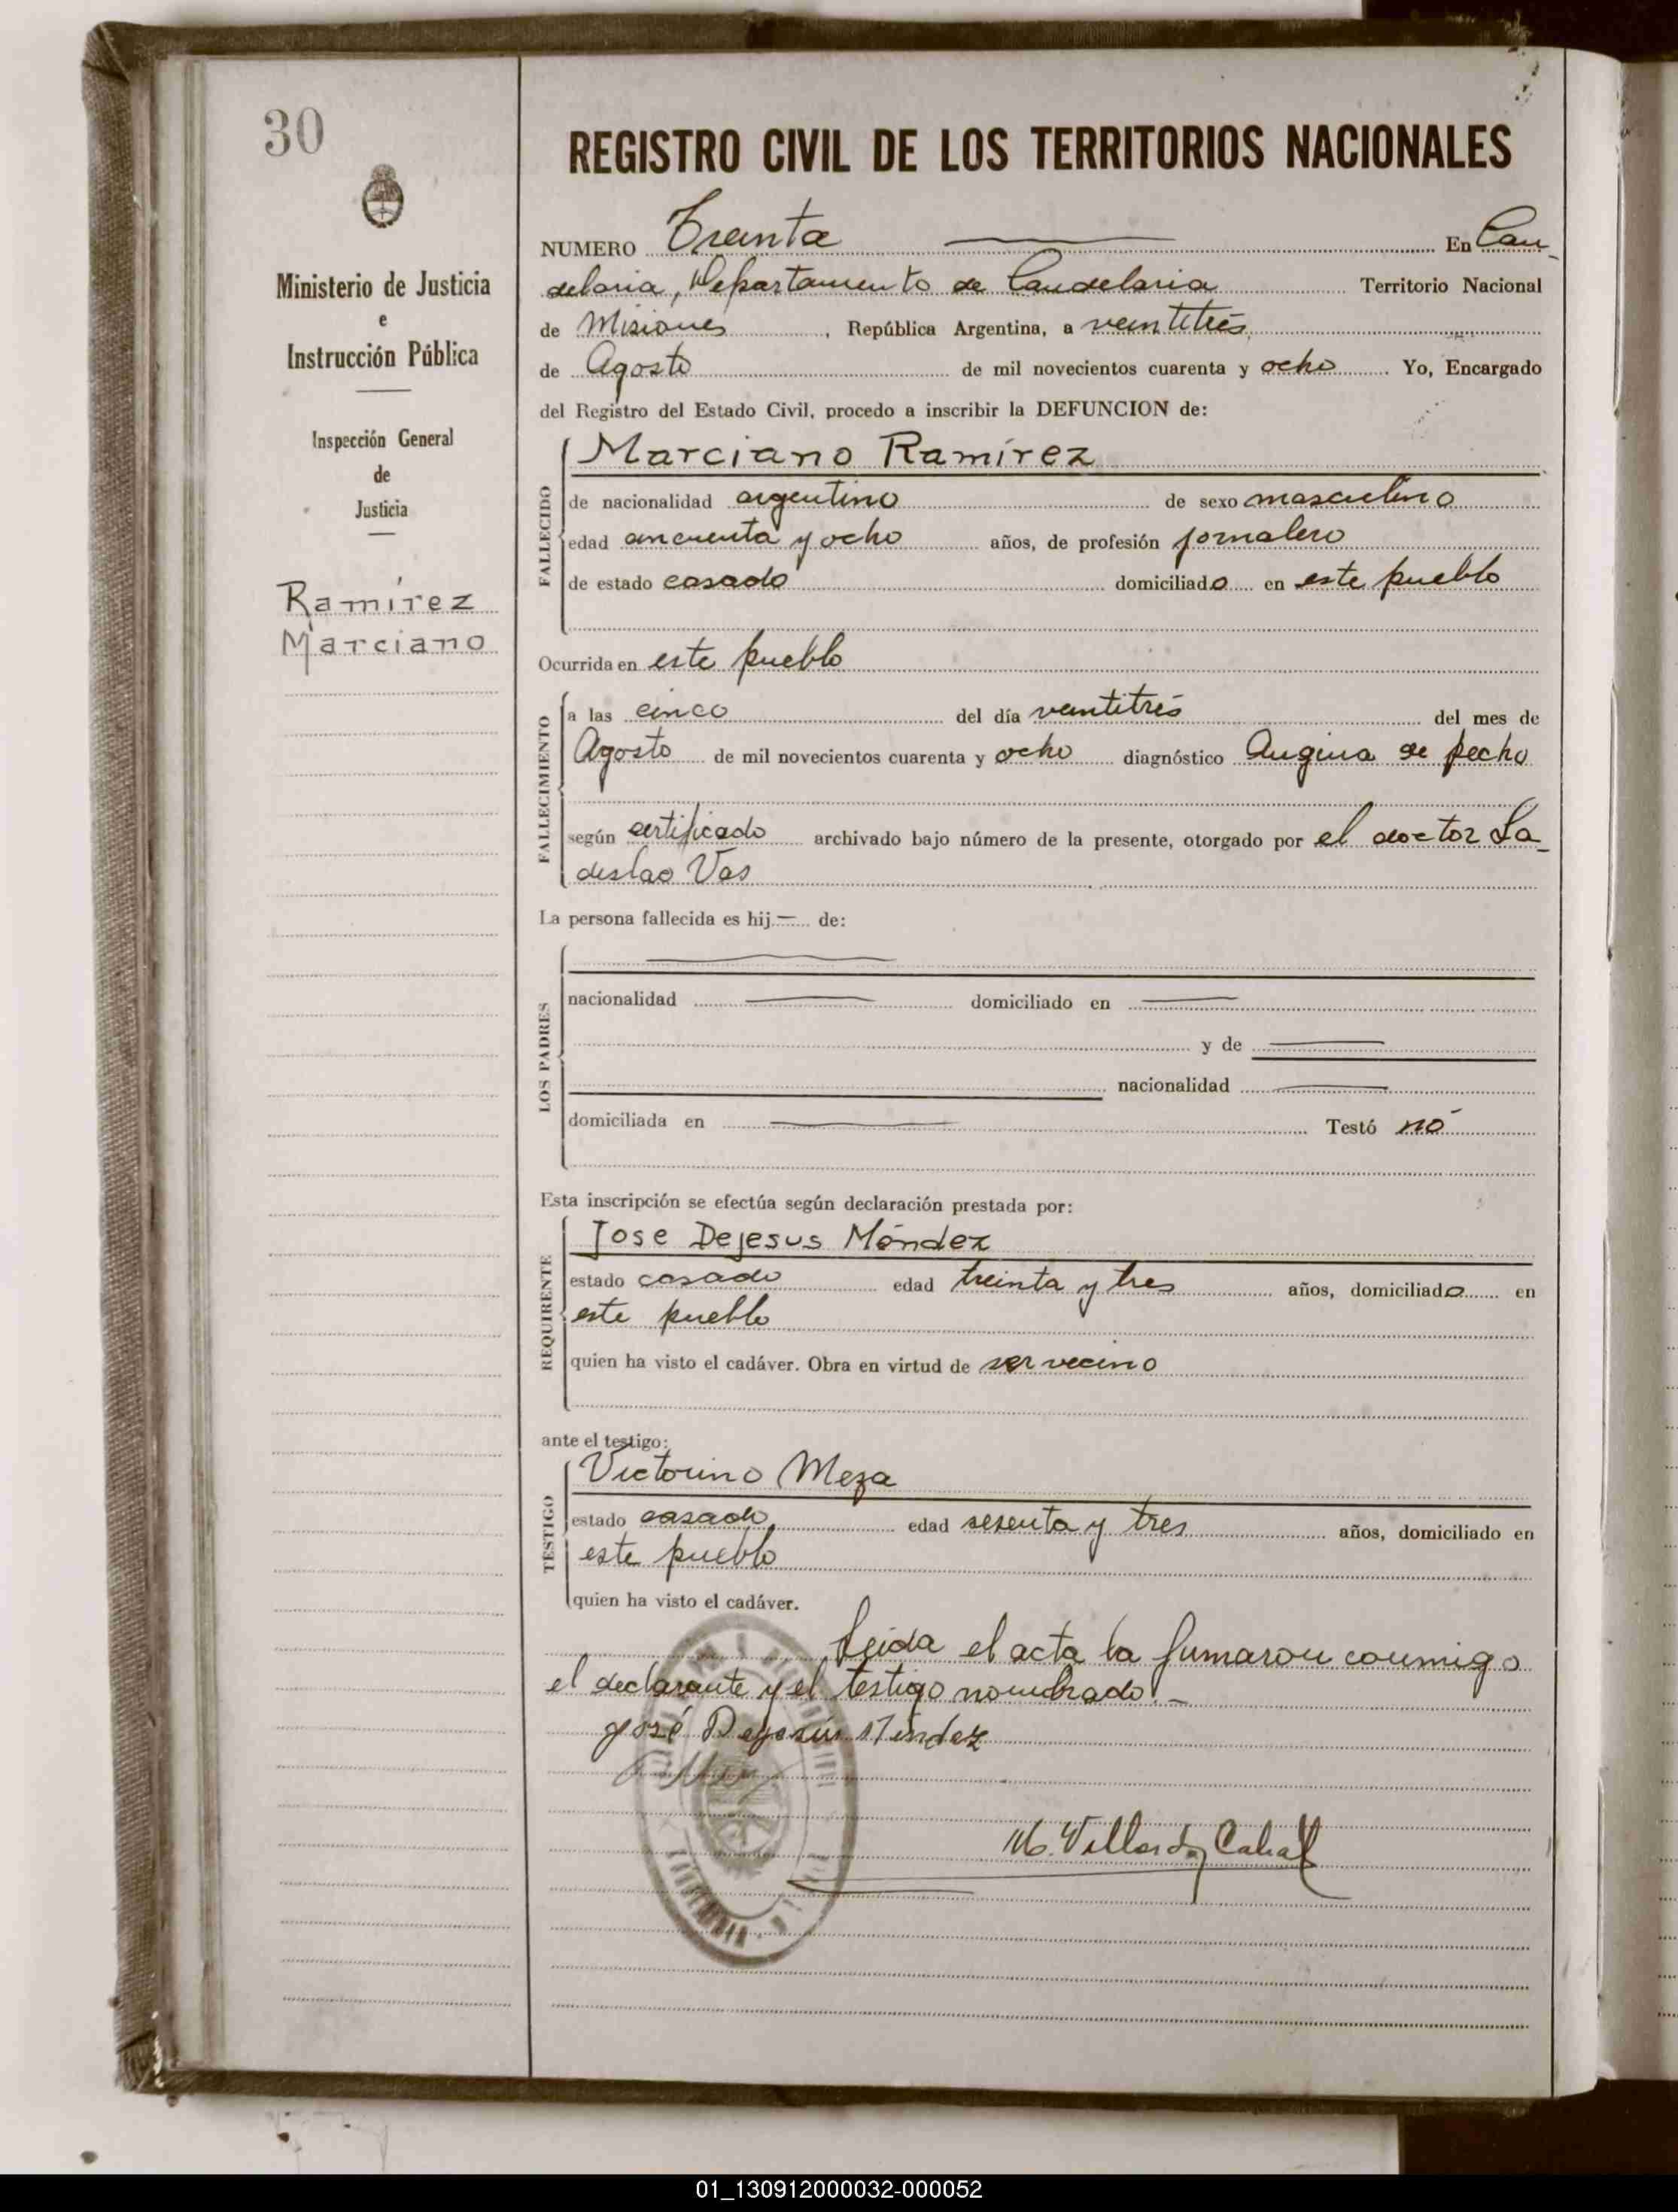 30
Ministerio de Justicia
e
Instrucción Pública
Inspección General
de
Justicia
Ramírez
Marciano
REGISTRO CIVIL DE LOS TERRITORIOS NACIONALES
NUMERO Treinta En Can-
delaria, Departamento de Candelaria Territorio Nacional
de Misiones, República Argentina, a veintitrés
de Agosto de mil novecientos cuarenta y ocho Yo, Encargado
del Registro del Estado Civil, procedo a inscribir la DEFUNCION de:
FALLECIDO
Marciano Ramírez
de nacionalidad argentino de sexo masculino
edad cincuenta y ocho años, de profesión jornalero
de estado casado domiciliado en este pueblo
Ocurrida en este pueblo
FALLECIMIENTO
a las cinco del día veintitrés del mes de
Agosto de mil novecientos cuarenta y ocho diagnóstico Angina de pecho
según certificado archivado bajo número de la presente, otorgado por el doctor La-
deslao Vas
La persona fallecida es hij — de:
LOS PADRES
nacionalidad — domiciliado en —
y de —
nacionalidad —
domiciliada en — Testó nó
Esta inscripción se efectúa según declaración prestada por:
REQUIRENTE
Jose Dejesus Méndez
estado casado edad treinta y tres años, domiciliado en
este pueblo
quien ha visto el cadáver. Obra en virtud de ser vecino
ante el testigo:
TESTIGO
Victorino Meza
estado casado edad sesenta y tres años, domiciliado en
este pueblo
quien ha visto el cadáver.
Leida el acta la firmaron conmigo
el declarante y el testigo nombrado.-
José Dejesús Méndez
01_130912000032-000052